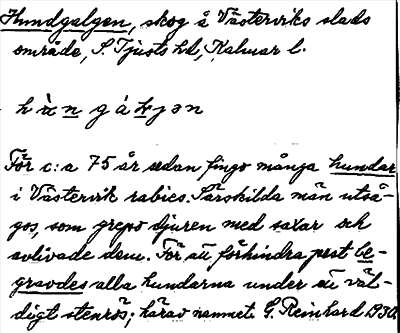 Hundgalgen, skog å Västerviks stads
område, S. Tjusts hd, Kalmar l.
h ù n g á ḷ j ə n
För c:a 75 år sedan fingo många hundar
i Västervik rabies. Särskilda män utså-
gos, som grepo djuren med saxar och
avlivade dem. För att förhindra pest be-
gravdes alla hundarna under ett väl-
digt stenrös; härav namnet. G. Reinhard 1930